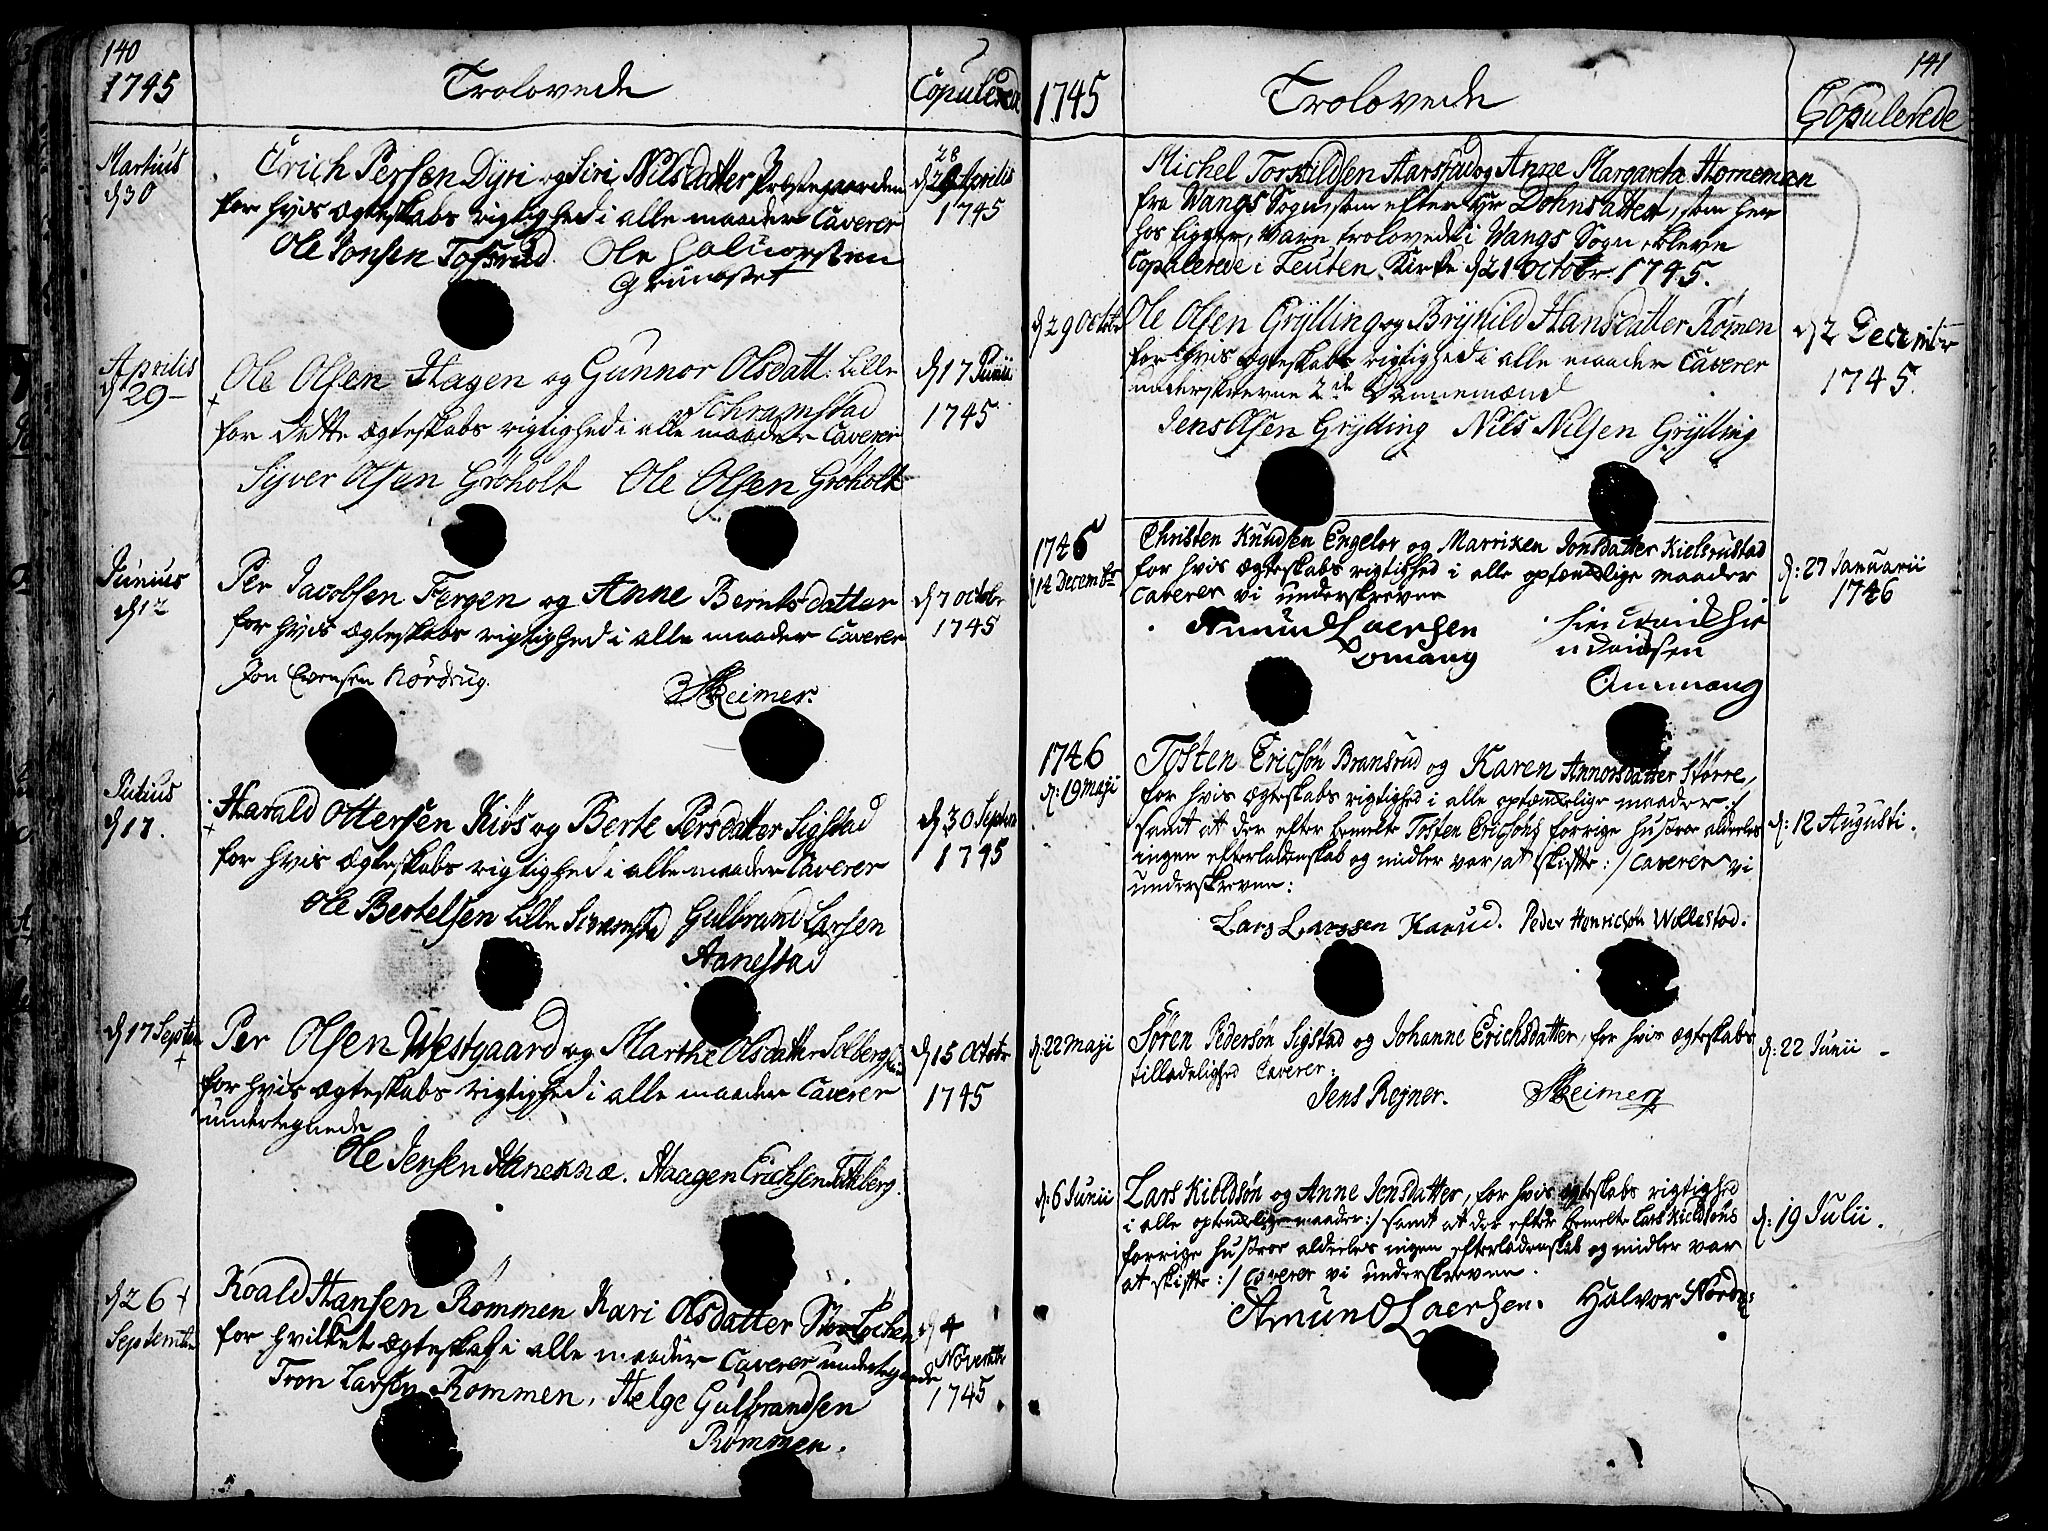 140
1745
Trolovede
Copulerede
Martius
d 30
Erich Persen Dyri og Siri Nilsdatter Præstegaarden
for hvis ægteskabs rigtighed i alle maader Caverer
Ole Jonsen Tofsrud Ole Halvorsen
Grundset
28
Aprilis
1745
Aprilis
d 29
Ole Olsen Hagen og Gunnor Olsdatt: Lille
Schramstad
for dette ægteskabs rigtighed i alle maader Caverer
Syver Olsen Grøholt Ole Olsen Grøholt
d 17 Junii
1745
Junius
d 12
Per Jacobsen Fergen og Anne Berntsdatter
for hvis ægteskabs rigtighed i alle maader Caverer
Jon Evensen Nordrug. Skeimer.
d 7 octobr
1745
Julius
d 17.
Harald Ottersen Kiøs og Berte Persdatter Sigstad
for hvis ægteskabs rigtighed i alle maader Caverer
Ole Bertelsen Lille Gulbrand Larsen
Aanestad
d 30 Septem
1745
d 17 Septem
Per Olsen Westgaard og Marthe Olsdatter
for hvis ægteskabs rigtighed i alle maader Caverer
undertegnede
Ole Jensen Haneknæ. Haagen Erichsen
d 15 octobr
1745
d 26
September
Roald Hansen Rømmen Kari Olsdatter
for hvilket ægteskab i alle maader Caverer undertegnede
Tron Larsen Rømmen, Helge Gulbrandsen
Rømmen.
d 4
Novembr
1745
141
1745
Trolovede
Copulerede
Michel Torkildsen Aarstad og Anne Margareta Horneman
fra Wangs Sogn, som efter Hr Dohnsatter, som her
hos ligger, vare trolovede i Wangs Sogn, bleve
Copulerede i Leuten Kirke d 21 octobr 1745.
d 29 octobr
Ole Olsen Grylling og Brynild Hansdatter Rømen
for hvis ægteskabs rigtighed i alle maader Caverer
underskrevne 2de Dannemænd
Jens Olsen Grylling Nils Nilsen Grylling
d 2 Decembr
1745.
1745
d 14 Decembr
Christen Knudsen Engelor og Marriken Jonsdatter Kielsrustad
for hvis ægteskabs rigtighed i alle optænkelige maader
caverer vi underskrevne
Amund Laersen
Lomang
Ommang
d: 27 Januarii
1746
1746
d: 19 Maji
Tosten Ericsøn Bransrud og Karen Annorsdatter Større,
for hvis ægteskabs rigtighed i alle optænkelige maader :/
samt at der efter bemelte Tosten Ericsøns forrige hustroe aldeeles
ingen efterladenskab og midler var at skifte :/ Caverer vi
underskrevne:
Lars Larssen Karud. Peder Henrichsøn Wollestad.
d: 12 Augusti.
d: 22 Maji
Søren Pedersøn Sigstad og Johanne Erichsdatter, for hvis ægteskabs
tilladelighed Caverer:
Jens Rejner. Skeimer
d: 22 Junii
d: 6 Junii
Lars Kieldsøn og Anne Jensdatter, for hvis ægteskabs rigtighed
i alle optænkelige maader :/ samt at der efter bemelte Lars Kieldsøns
forrige hustroe aldeeles ingen efterladenskab og midler var
at skifte :/ Caverer vi underskrevne.
Amund Laersen. Halvor
d: 19 Julii.